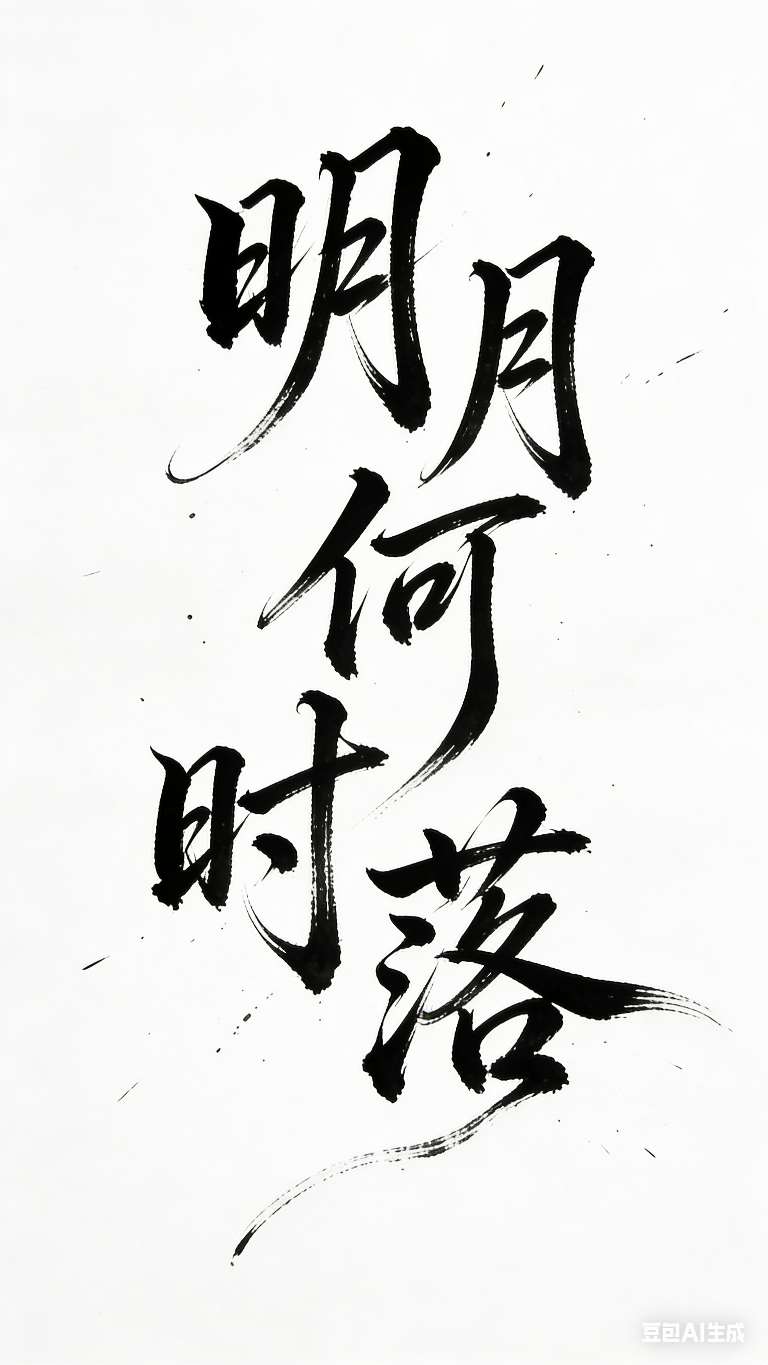 明月
何
时落
豆包AI生成